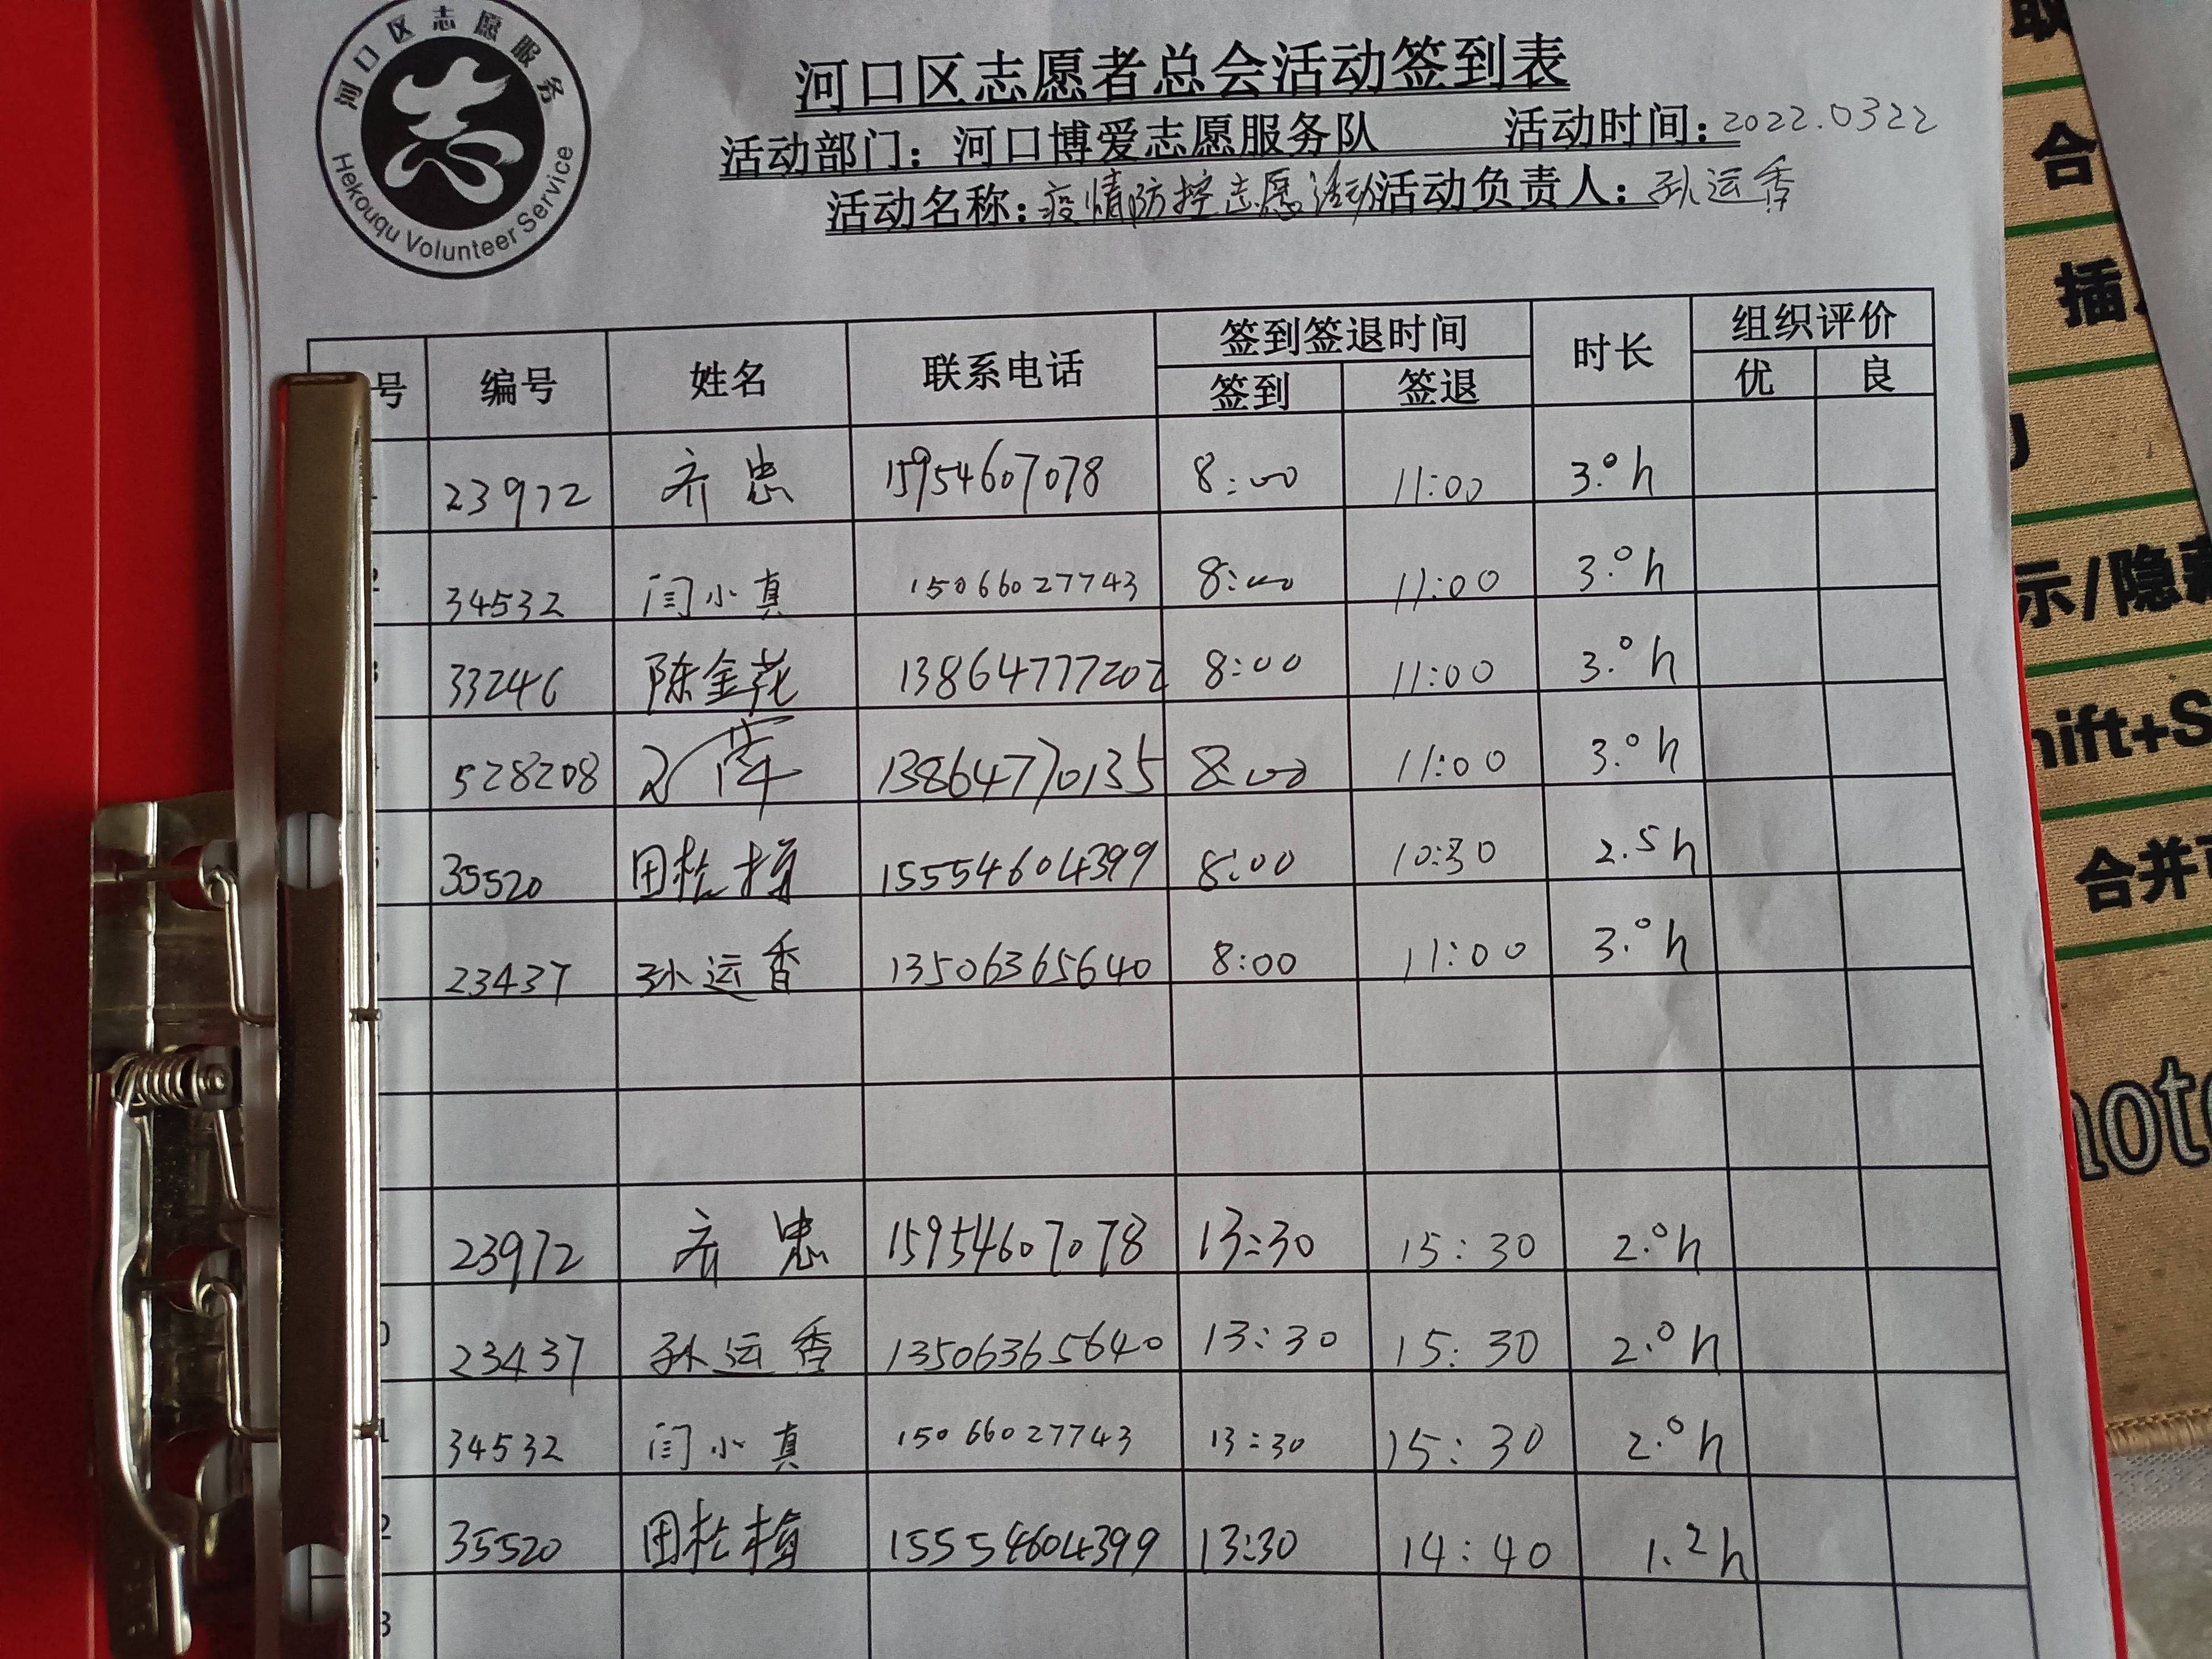 河口区志愿服务
Hekouqu Volunteer Service
河口区志愿者总会活动签到表
活动部门：河口博爱志愿服务队 活动时间：2022.0322
活动名称：疫情防控志愿活动 活动负责人：孙运香
号 编号 姓名 联系电话 签到签退时间 时长 组织评价
签到 签退 优 良
23972 齐忠 15954607078 8:00 11:00 3.0h
34532 闫小真 15066027743 8:00 11:00 3.0h
33246 陈金花 13864777202 8:00 11:00 3.0h
528208 13864770135 8:00 11:00 3.0h
35520 田松 15554604399 8:00 10:30 2.5h
23437 孙运香 13506365640 8:00 11:00 3.0h
23972 齐忠 15954607078 13:30 15:30 2.0h
23437 孙运香 13506365640 13:30 15:30 2.0h
34532 闫小真 15066027743 13:30 15:30 2.0h
35520 田松 15554604399 13:30 14:40 1.2h
3
合
插
示/隐藏
hift+S
合并
note